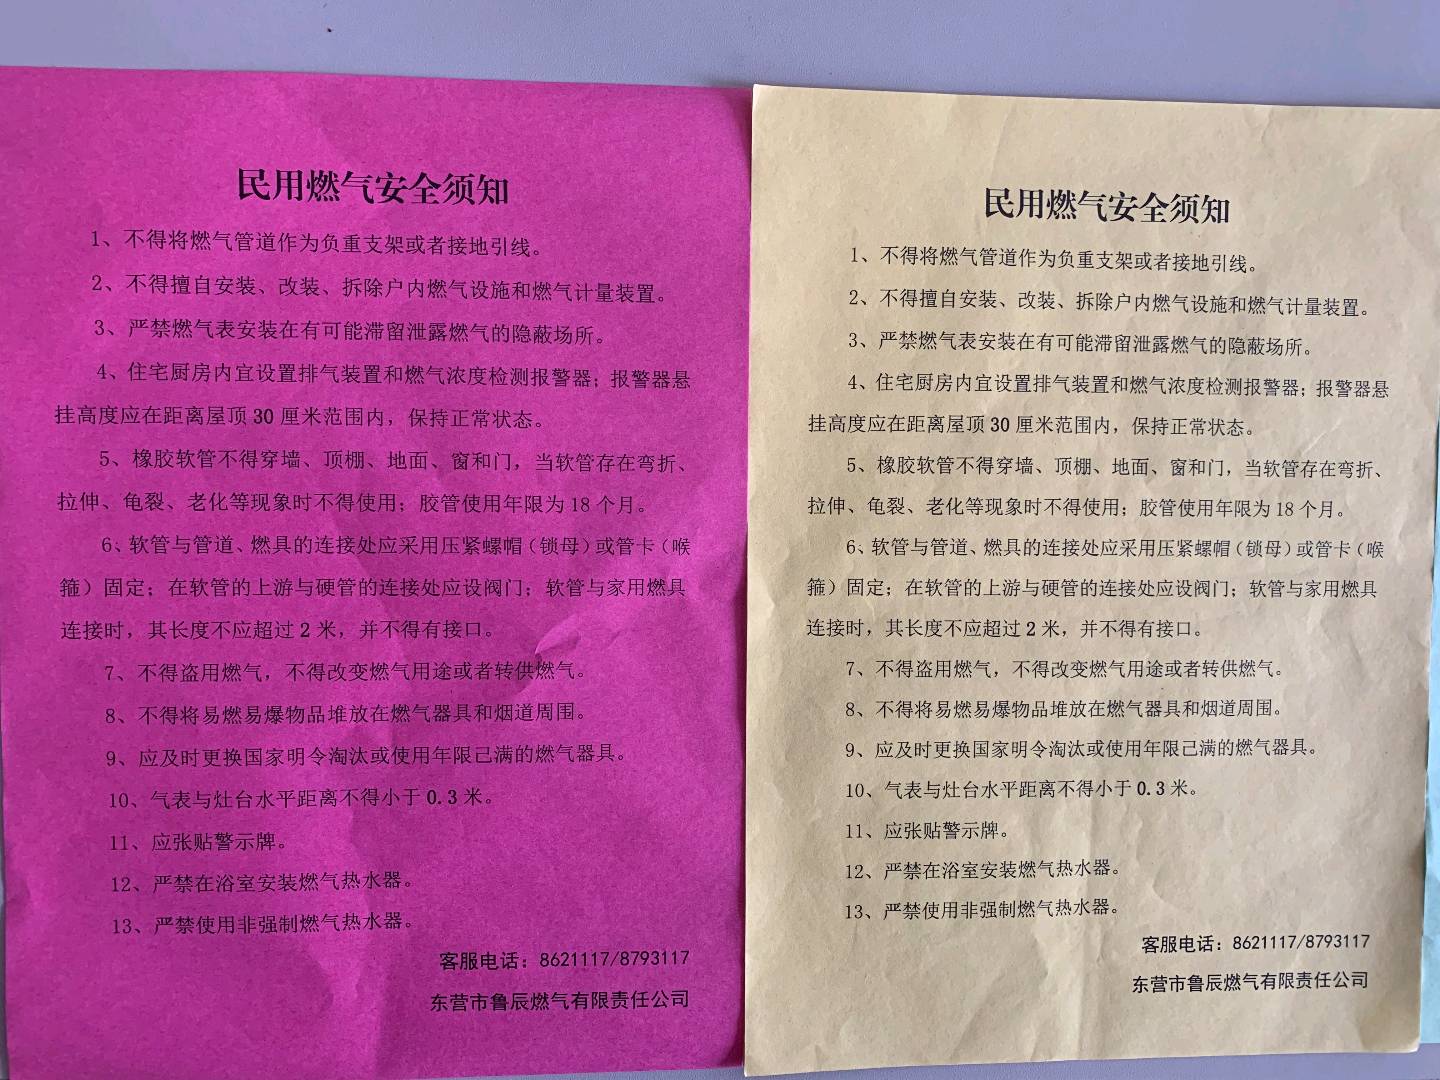 民用燃气安全须知
1、不得将燃气管道作为负重支架或者接地引线。
2、不得擅自安装、改装、拆除户内燃气设施和燃气计量装置。
3、严禁燃气表安装在有可能滞留泄露燃气的隐蔽场所。
4、住宅厨房内宜设置排气装置和燃气浓度检测报警器；报警器悬
挂高度应在距离屋顶30厘米范围内，保持正常状态。
5、橡胶软管不得穿墙、顶棚、地面、窗和门，当软管存在弯折、
拉伸、龟裂、老化等现象时不得使用；胶管使用年限为18个月。
6、软管与管道、燃具的连接处应采用压紧螺帽（锁母）或管卡（喉
箍）固定；在软管的上游与硬管的连接处应设阀门；软管与家用燃具
连接时，其长度不应超过2米，并不得有接口。
7、不得盗用燃气，不得改变燃气用途或者转供燃气。
8、不得将易燃易爆物品堆放在燃气器具和烟道周围。
9、应及时更换国家明令淘汰或使用年限己满的燃气器具。
10、气表与灶台水平距离不得小于0.3米。
11、应张贴警示牌。
12、严禁在浴室安装燃气热水器。
13、严禁使用非强制燃气热水器。
客服电话：8621117/8793117
东营市鲁辰燃气有限责任公司
民用燃气安全须知
1、不得将燃气管道作为负重支架或者接地引线。
2、不得擅自安装、改装、拆除户内燃气设施和燃气计量装置。
3、严禁燃气表安装在有可能滞留泄露燃气的隐蔽场所。
4、住宅厨房内宜设置排气装置和燃气浓度检测报警器；报警器悬
挂高度应在距离屋顶30厘米范围内，保持正常状态。
5、橡胶软管不得穿墙、顶棚、地面、窗和门，当软管存在弯折、
拉伸、龟裂、老化等现象时不得使用；胶管使用年限为18个月。
6、软管与管道、燃具的连接处应采用压紧螺帽（锁母）或管卡（喉
箍）固定；在软管的上游与硬管的连接处应设阀门；软管与家用燃具
连接时，其长度不应超过2米，并不得有接口。
7、不得盗用燃气，不得改变燃气用途或者转供燃气。
8、不得将易燃易爆物品堆放在燃气器具和烟道周围。
9、应及时更换国家明令淘汰或使用年限己满的燃气器具。
10、气表与灶台水平距离不得小于0.3米。
11、应张贴警示牌。
12、严禁在浴室安装燃气热水器。
13、严禁使用非强制燃气热水器。
客服电话：8621117/8793117
东营市鲁辰燃气有限责任公司